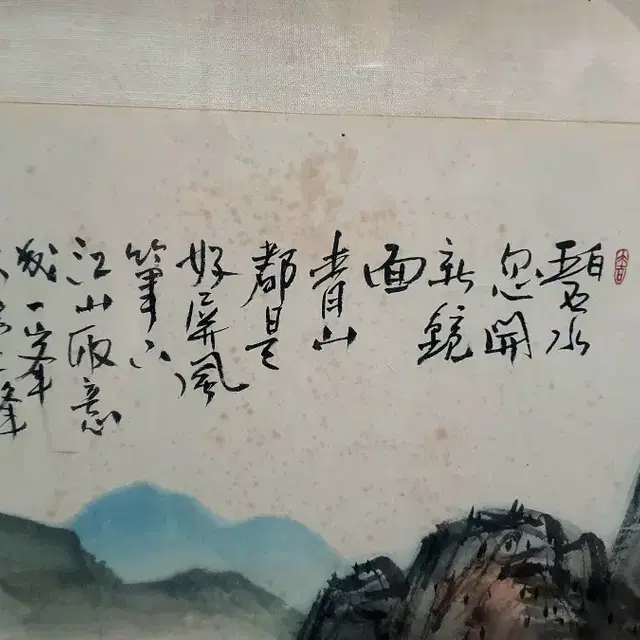 大吉
碧水
忽開
新鏡
面
青山
都是
好屏風
筆下
江山意
一峯
峯